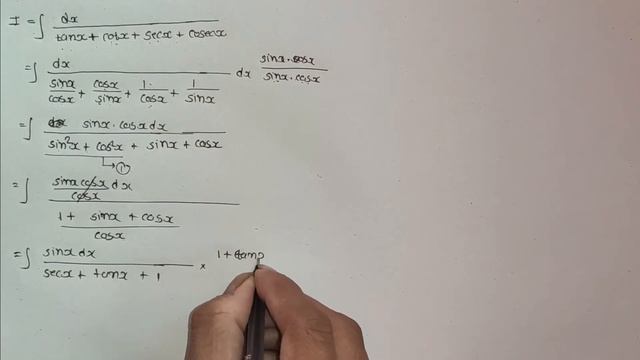 I = ∫ dx / tanx + cotx + secx + cosecx
= ∫ dx / sinx/cosx + cosx/sinx + 1/cosx + 1/sinx dx sinx·cosx / sinx·cosx
= ∫ sinx·cosx dx / sin²x + cos²x + sinx + cosx
→ 1
= ∫ sinx cosx dx / cosx / 1 + sinx + cosx / cosx
= ∫ sinx dx / secx + tanx + 1 × 1 + tan